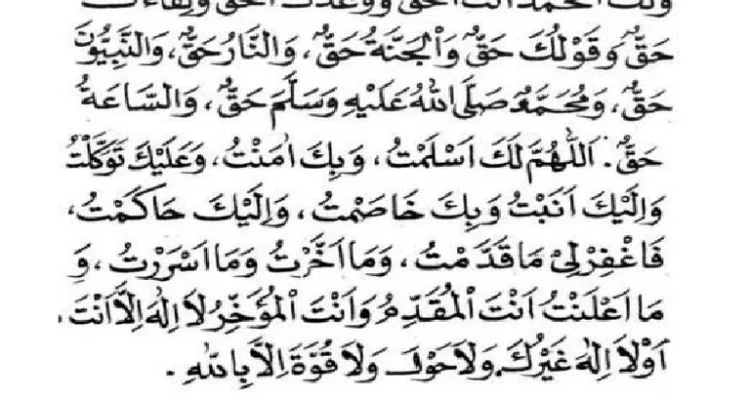 وَلَكَ الْحَمْدُ اَنْتَ الْحَقُّ وَوَعْدُكَ الْحَقُّ وَلِقَاءُكَ
حَقٌّ وَقَوْلُكَ حَقٌّ وَالْجَنَّةُ حَقٌّ، وَالنَّارُ حَقٌّ، وَالنَّبِيُّوْنَ
حَقٌّ، وَمُحَمَّدٌ صَلَّى اللهُ عَلَيْهِ وَسَلَّمَ حَقٌّ، وَالسَّاعَةُ
حَقٌّ. اَللّٰهُمَّ لَكَ اَسْلَمْتُ، وَبِكَ اٰمَنْتُ، وَعَلَيْكَ تَوَكَّلْتُ
وَاِلَيْكَ اَنَبْتُ وَبِكَ خَاصَمْتُ، وَاِلَيْكَ حَاكَمْتُ،
فَاغْفِرْلِيْ مَا قَدَّمْتُ، وَمَا اَخَّرْتُ وَمَا اَسْرَرْتُ، وَ
مَا اَعْلَنْتُ اَنْتَ الْمُقَدِّمُ وَاَنْتَ الْمُؤَخِّرُ لَا اِلٰهَ اِلَّا اَنْتَ،
اَوْلَا اِلٰهَ غَيْرُكَ وَلَا حَوْلَ وَلَا قُوَّةَ اِلَّا بِاللهِ.